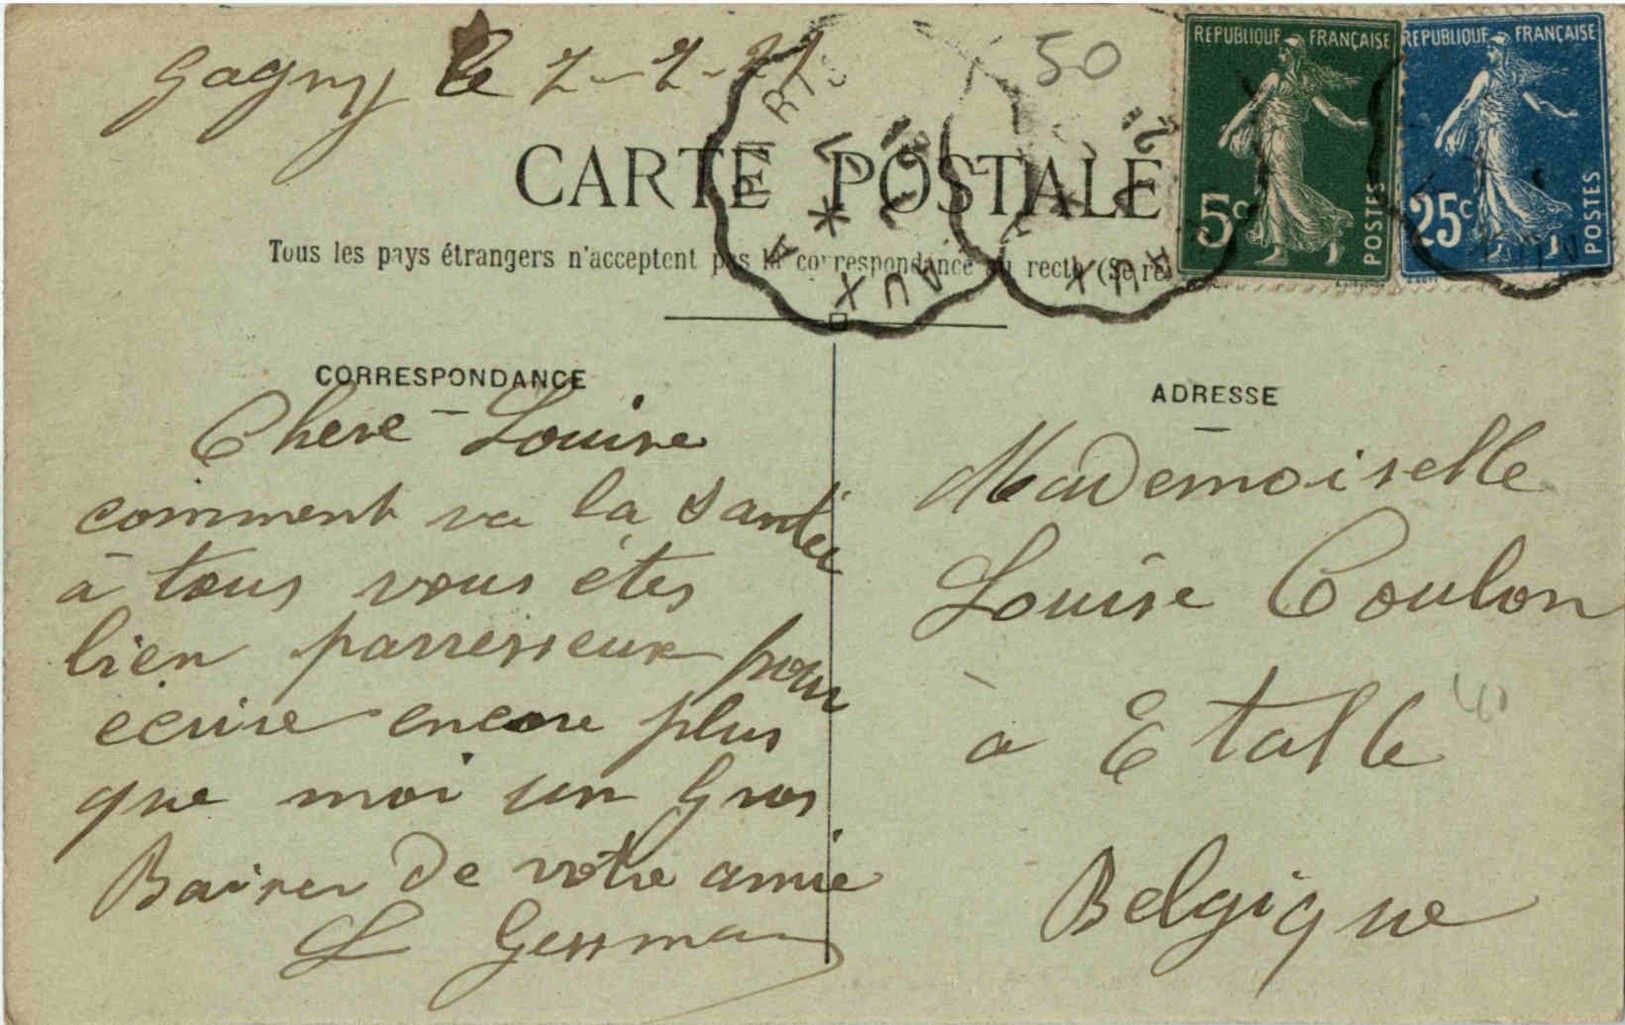 Gagny le 7-2-21
50
REPUBLIQUE FRANÇAISE
5c
POSTES
REPUBLIQUE FRANÇAISE
25c
POSTES
CARTE POSTALE
Tous les pays étrangers n'acceptent pas la correspondance au recto (Se re
PARIS
A
MEAUX
CORRESPONDANCE
Chere Louise
comment va la santée
à tous vous étes
bien parresseux pour
écrire encore plus
que moi un Gros
Baiser de votre amie
L Gessman
ADRESSE
Mademoiselle
Louise Coulon
à Etalle
Belgique